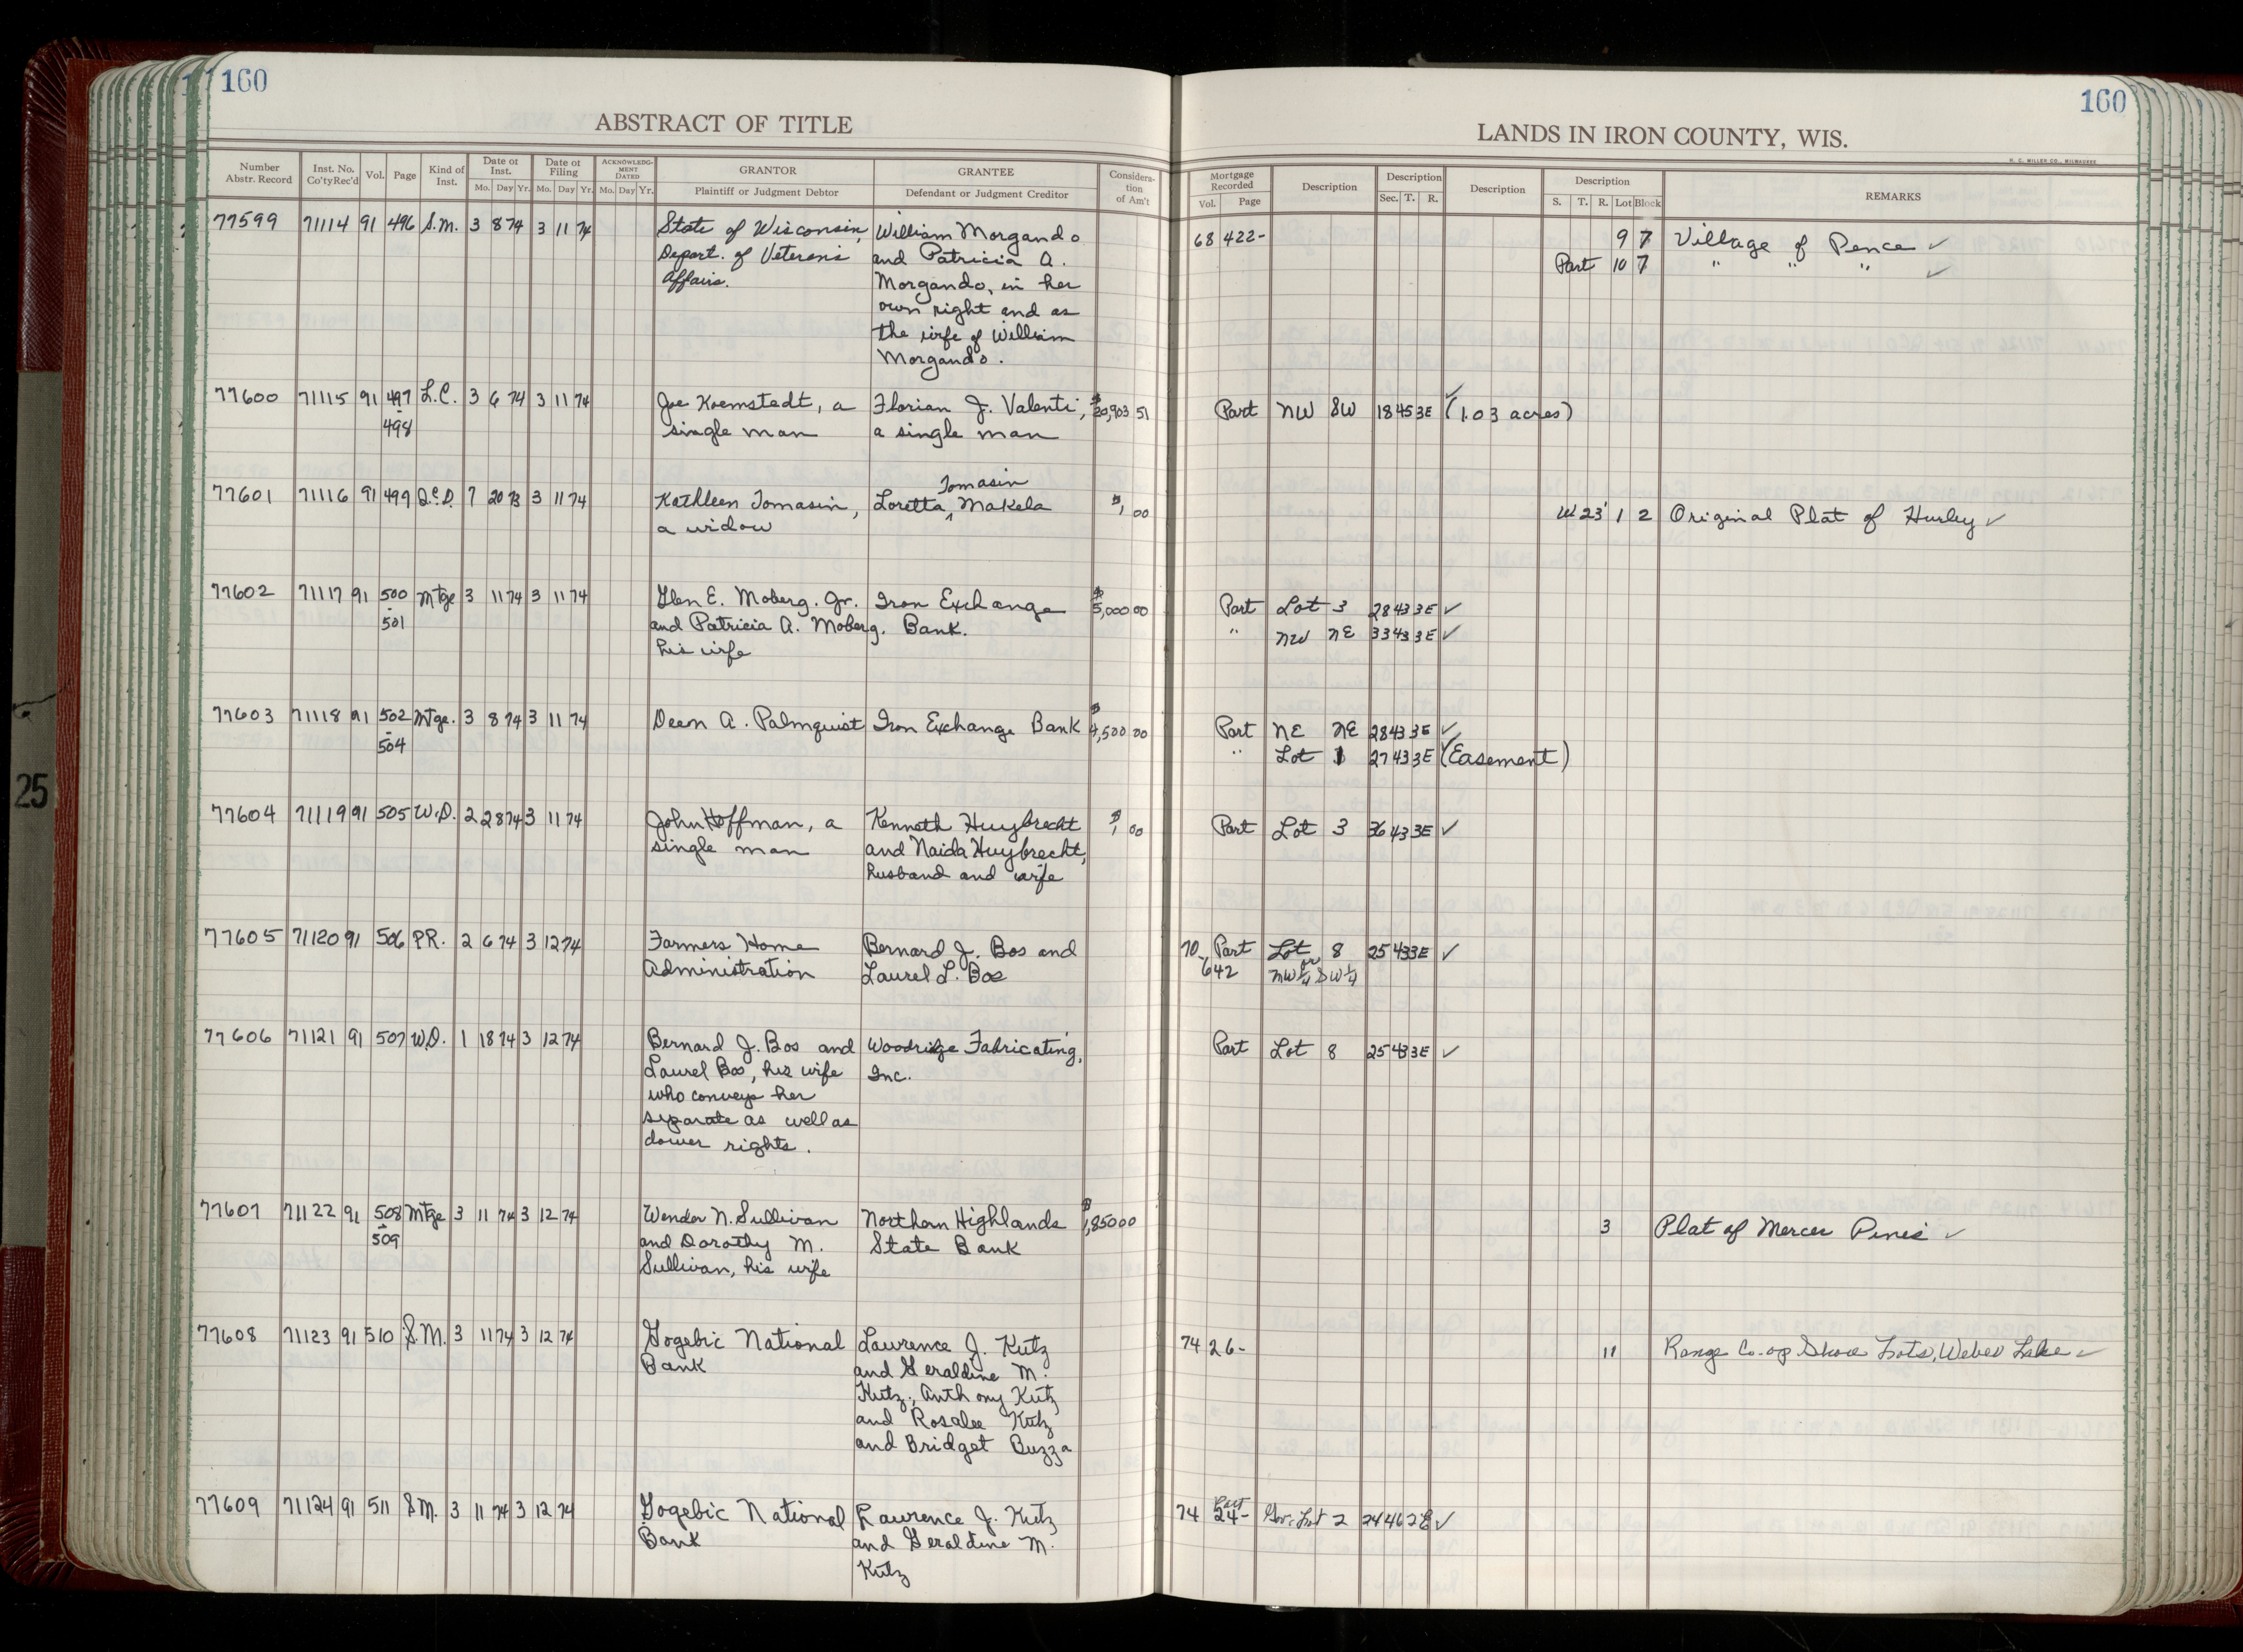 160
ABSTRACT OF TITLE
Number Abstr. Record | Inst. No. Co'ty Rec'd | Vol. | Page | Kind of Inst. | Date of Inst. Mo. Day Yr. | Date of Filing Mo. Day Yr. | ACKNOWLEDGMENT DATED Mo. Day Yr. | GRANTOR Plaintiff or Judgment Debtor | GRANTEE Defendant or Judgment Creditor | Consideration of Am't
77599 71114 91 496 S.M. 3 8 74 3 11 74 State of Wisconsin, William Morgando
Depart. of Veterans and Patricia A.
Affairs. Morgando, in her
own right and as
the wife of William
Morgando.
77600 71115 91 497 L.C. 3 6 74 3 11 74 Joe Koemstedt, a Florian J. Valenti, $20,903 51
- 498 single man a single man
Tomasin
77601 71116 91 499 Q.C.D. 7 20 73 3 11 74 Kathleen Tomasin, Loretta ^ Makela $1, 00
a widow
77602 71117 91 500 Mtge 3 11 74 3 11 74 Glen E. Moberg. Jr. Iron Exchange $5,000 00
- 501 and Patricia A. Moberg, Bank.
his wife
77603 71118 91 502 Mtge. 3 8 74 3 11 74 Deen A. Palmquist Iron Exchange Bank $4,500 00
- 504
77604 71119 91 505 W.D. 2 28 74 3 11 74 John Hoffman, a Kenneth Huybrecht $1, 00
single man and Naida Huybrecht,
husband and wife
77605 71120 91 506 P.R. 2 6 74 3 12 74 Farmers Home Bernard J. Bos and
Administration Laurel L. Bos
77606 71121 91 507 W.D. 1 18 74 3 12 74 Bernard J. Bos and Woodridge Fabricating,
Laurel Bos, his wife Inc.
who conveys her
separate as well as
dower rights.
77607 71122 91 508 Mtge 3 11 74 3 12 74 Wender N. Sullivan Northern Highlands $1,850 00
- 509 and Dorothy M. State Bank
Sullivan, his wife
77608 71123 91 510 S.M. 3 11 74 3 12 74 Gogebic National Laurence J. Kutz
Bank and Geraldine M.
Kutz, Anthony Kutz
and Rosalee Kutz
and Bridget Buzza
77609 71124 91 511 S.M. 3 11 74 3 12 74 Gogebic National Lawrence J. Kutz
Bank and Geraldine M.
Kutz
25
160
LANDS IN IRON COUNTY, WIS.
H. C. MILLER CO., MILWAUKEE
Mortgage Recorded Vol. Page | Description | Description Sec. T. R. | Description | Description S. T. R. Lot Block | REMARKS
68 422- 9 7 Village of Pence ✓
Part 10 7 " " " ✓
Part NW SW 18 45 3E ✓ (1.03 acres)
W 23' 1 2 Original Plat of Hurley ✓
Part Lot 3 28 43 3E ✓
" NW NE 33 43 3E ✓
Part NE NE 28 43 3E ✓
" Lot 1 27 43 3E (Easement)
Part Lot 3 36 43 3E ✓
70- Part Lot 8 25 43 3E ✓
642 or NW¼ SW¼
Part Lot 8 25 43 3E ✓
3 Plat of Mercer Pines ✓
74 26- 11 Range Co-op Shore Lots, Weber Lake ✓
Part
74 24- Gov. Lot 2 24 46 2E ✓